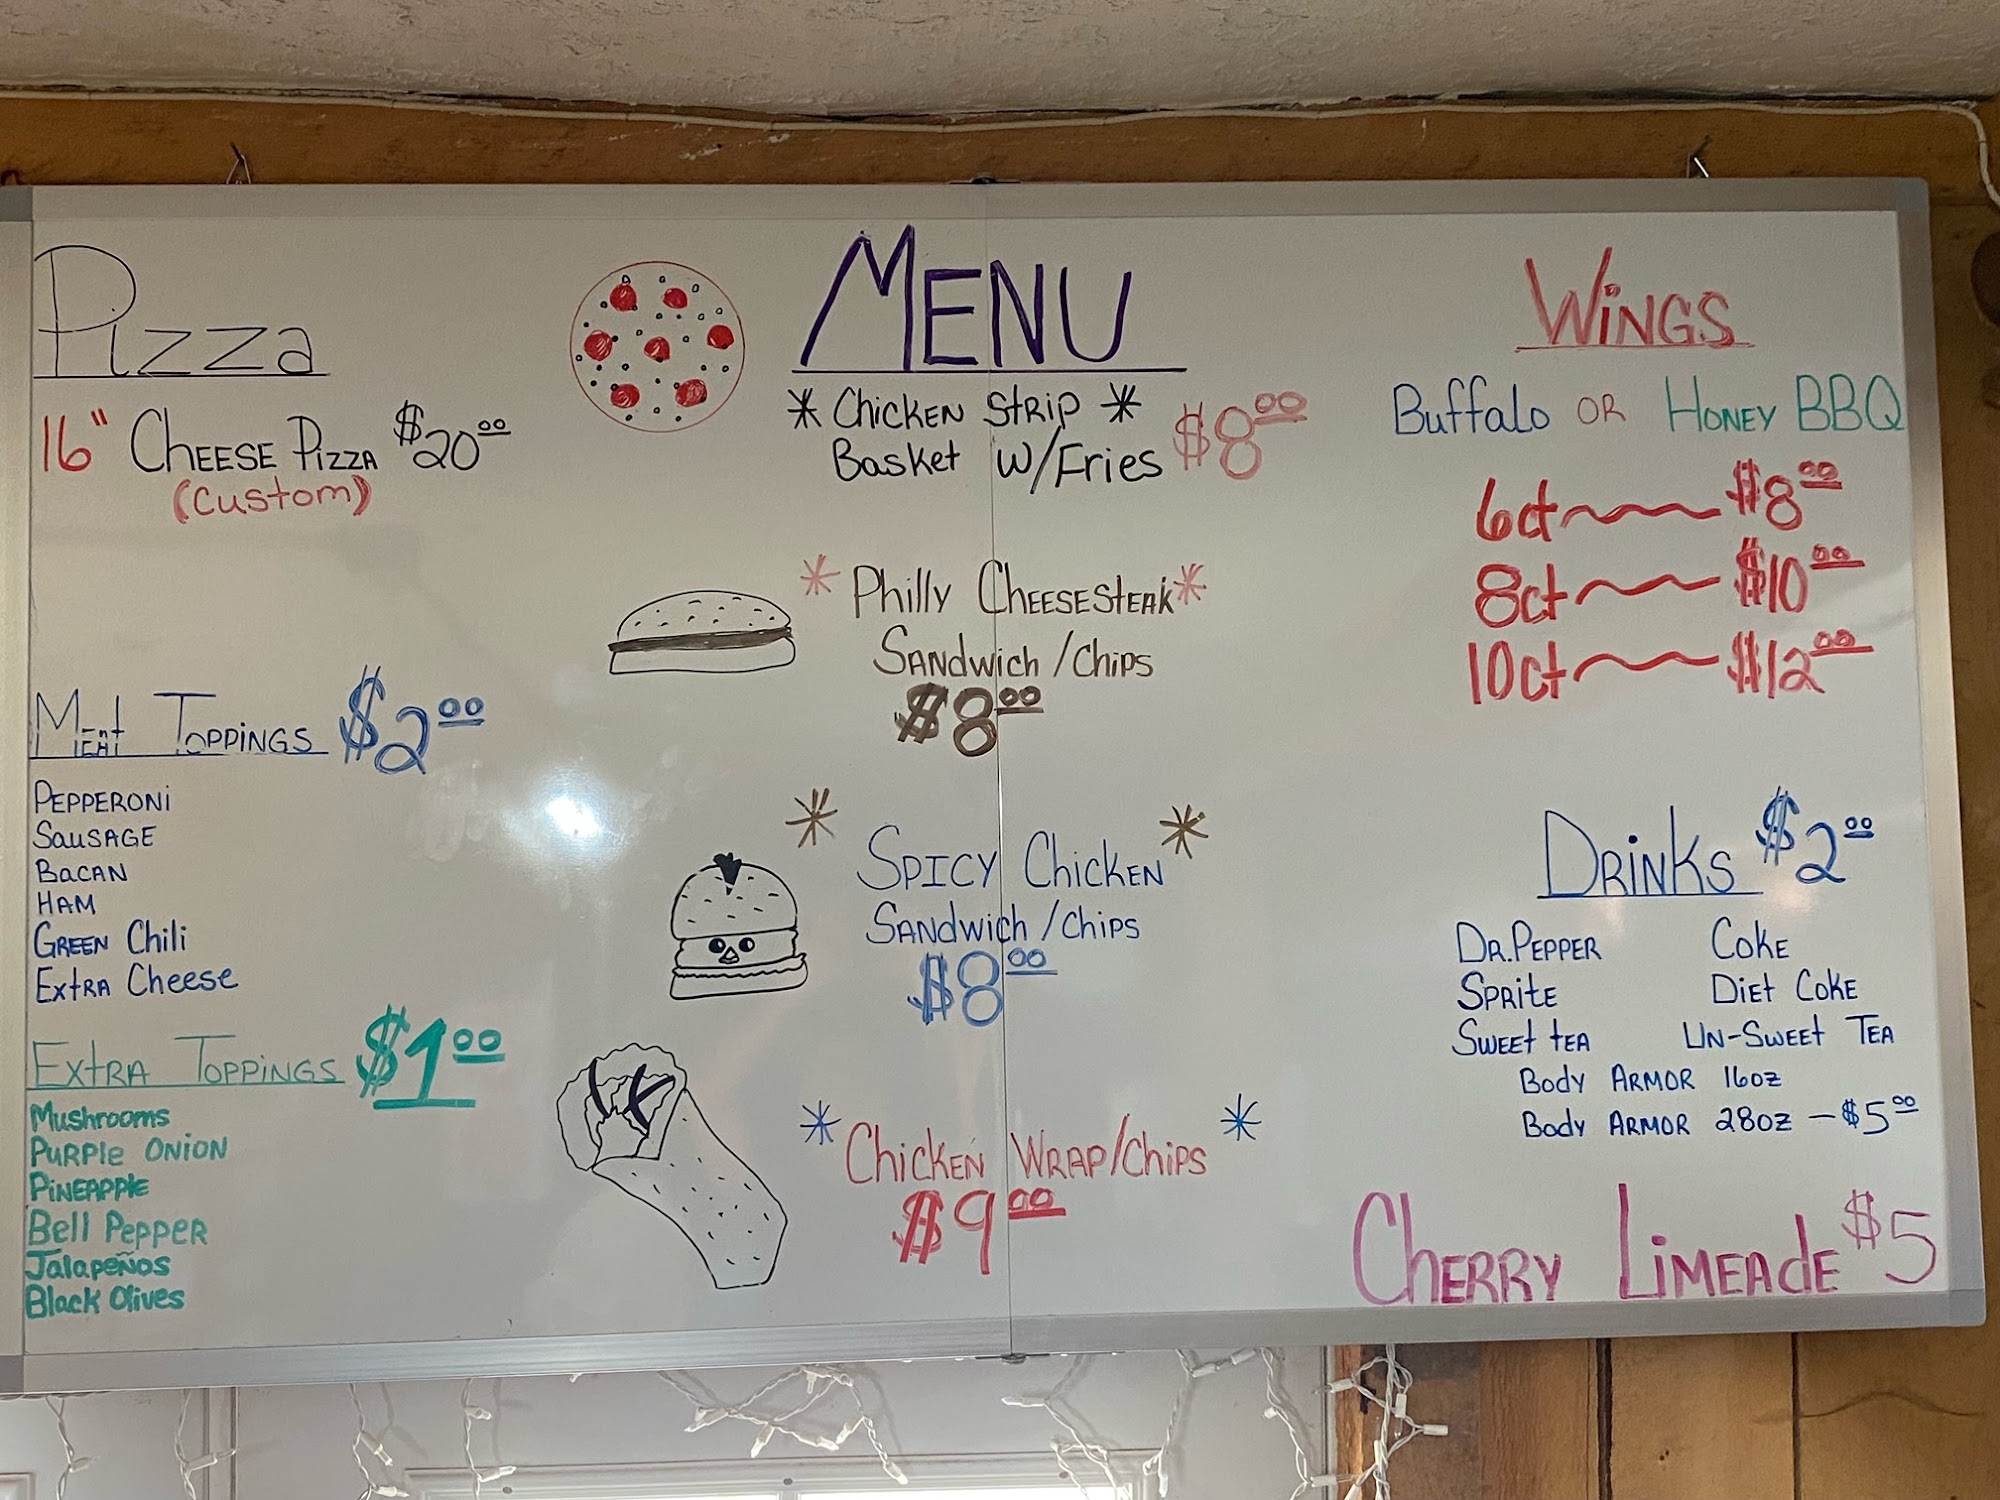 Pizza
16" CHEESE PIZZA $20.00
(Custom)
Meat TOPPINGS $2.00
PEPPERONi
SauSAGE
BaCAN
HAM
GREEN Chili
ExtRA Cheese
ExtRA TOPPINGS $1.00
Mushrooms
PURPle ONION
PiNEAPPle
Bell PEPPER
Jalapeños
Black Olives
MENU
* Chicken Strip *
Basket w/Fries $8.00
* Philly CHEESESTEAK *
SANdwich /Chips
$8.00
* SPICY Chicken *
SANdwich /Chips
$8.00
* Chicken WRAP/Chips *
$9.00
WiNGS
Buffalo OR HONEY BBQ
6ct ~~~ $8.00
8ct ~~~ $10.00
10ct ~~~ $12.00
DRiNKS $2.00
DR.PEPPER Coke
SPRite DiEt Coke
SWEEt tEA UN-SWEEt TEA
Body ARMOR 16oz
Body ARMOR 28oz - $5.00
CHERRY LiMEAdE $5